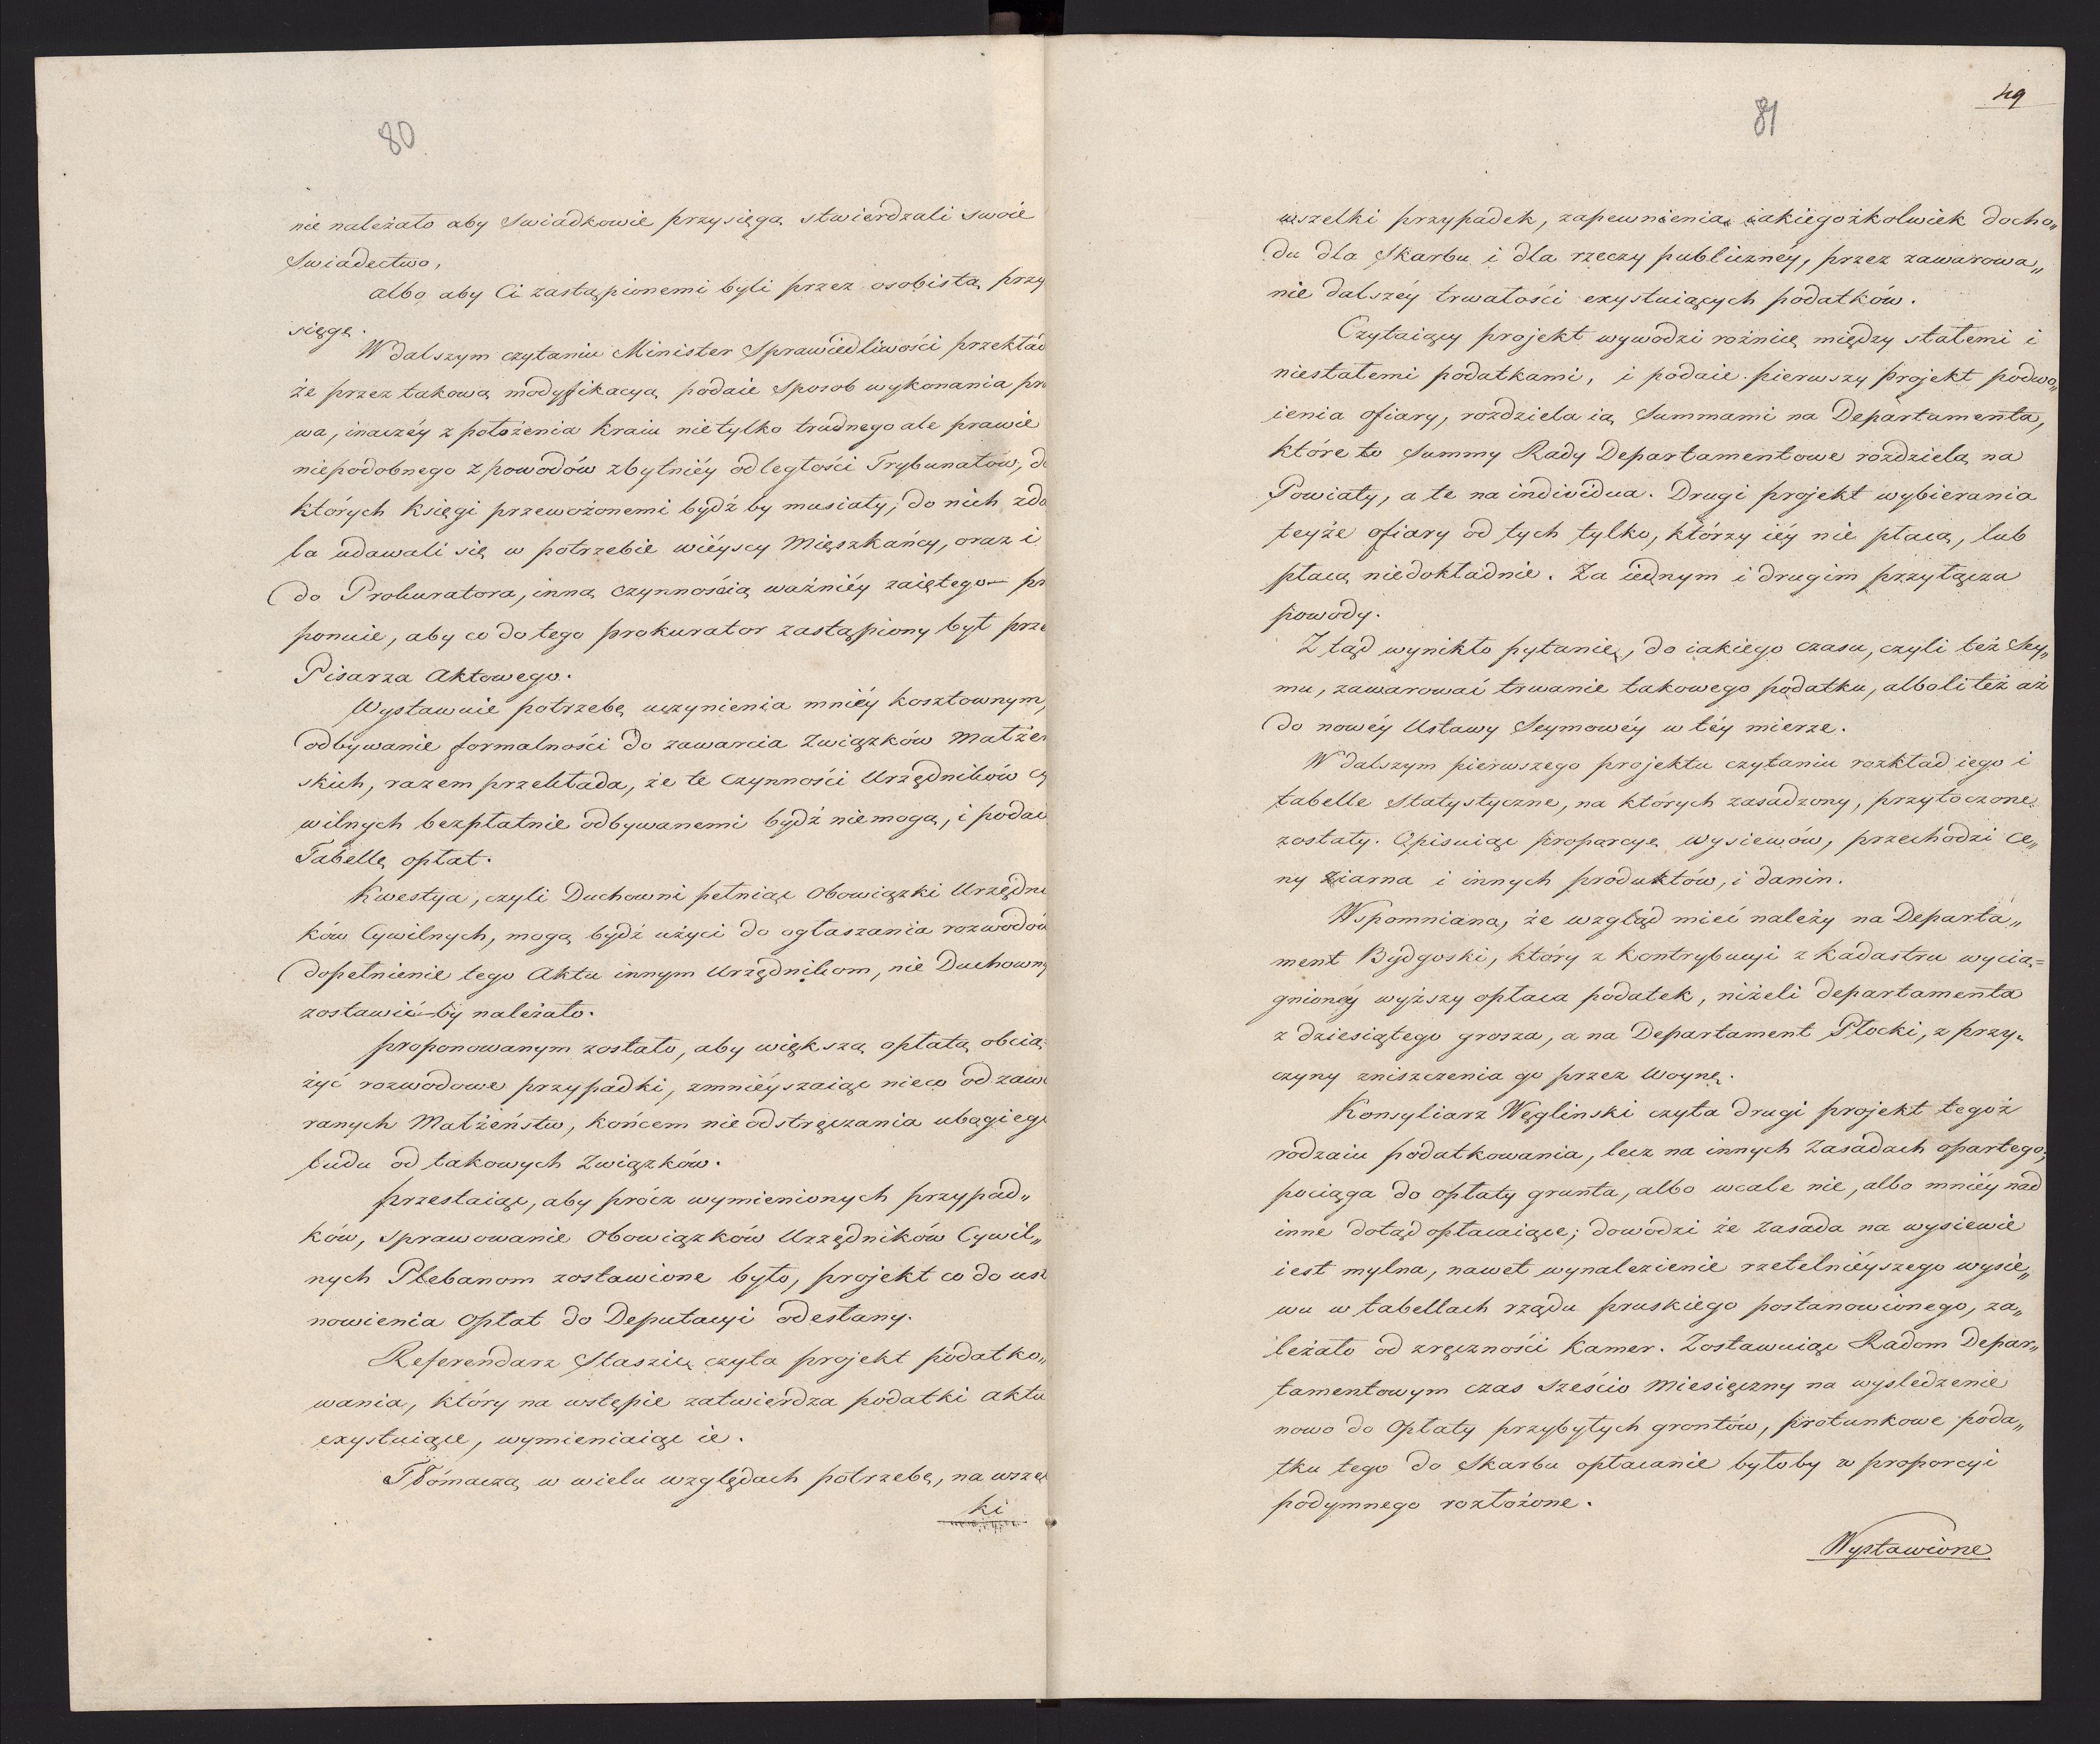 80
nie należało aby Swiadkowie przysięgą stwierdzali swoie
Swiadectwo,
albo aby Ci zastąpionemi byli przez osobistą przy
sięgę.
W dalszym czytaniu Minister Sprawiedliwości przekład
że przez takową modyfikacyą podaie sposob wykonania pra
wa, inaczéy z położenia kraiu nietylko trudnego ale prawie
niepodobnego z powodów zbytniéy odległości Trybunałów, do
których księgi przewożonemi bydź by musiały; do nich zda
la udawali się w potrzebie wiéyscy Mięszkańcy, oraz i
do Prokuratora, inną czynnością ważniéy zaiętego — pro
ponuie, aby co do tego prokurator zastąpiony był prze
Pisarza Aktowego.
Wystawuie potrzebę uczynienia mniéy kosztownym,
odbywanie formalności do zawarcia Związków Małżeń
skich, razem przekłada, że te czynności Urzędników Cy
wilnych bezpłatnie odbywanemi bydź niemogą, i podaie
Tabellę opłat.
Kwestya, czyli Duchowni pełniąc Obowiązki Urzędni
ków Cywilnych, mogą bydź użyci do ogłaszania rozwodów
dopełnienie tego Aktu innym Urzędnikom, nie Duchowny
zostawić by należało.
proponowanym zostało, aby większą opłatą obcią
żyć rozwodowe przypadki, zmniéyszaiąc nieco od zawie
ranych Małżeństw, końcem nie odstręczania ubogiego
ludu od takowych Związków.
przestaiąc, aby prócz wymienionych przypad„
ków, sprawowanie Obowiązków Urzędników Cywil„
nych Plebanom zostawione było, projekt co do usta
nowienia Opłat do Deputacyi odesłany.
Referendarz Staszic czyta projekt podatko„
wania, który na wstępie zatwierdza podatki aktu
exystuiące, wymieniaiąc ie.
Tłómaczą w wielu względach potrzebę, na wszel
ki
49
81
wszelki przypadek, zapewnienia iakiegożkolwiek docho„
du dla Skarbu i dla rzeczy publicznéy, przez zawarowa„
nie dalszéy trwałości exystuiących podatków.
Czytaiący projekt wywodzi rożnicę między stałemi i
niestałemi podatkami, i podaie pierwszy projekt podwo„
ienia ofiary, rozdziela ią Summami na Departamenta,
które to Summy Rady Departamentowe rozdzielą na
Powiaty, a te na individua. Drugi projekt wybierania
teyże ofiary od tych tylko, którzy iéy nie płacą, lub
płacą niedokładnie. Za iednym i drugim przyłącza
powody.
Ztąd wynikło pytanie, do iakiego czasu, czyli też Sey„
mu, zawarować trwanie takowego podatku, albolitéż aż
do nowéy Ustawy Seymowéy w téy mierze.
W dalszym pierwszego projektu czytaniu rozkład iego i
tabelle Statystyczne, na których zasadzony, przytoczone
zostały. Opisuiąc proparcyę wysiewów, przechodzi ce„
ny ziarna i innych produktów, i danin.
Wspomniano, że wzgląd mieć należy na Departa„
ment Bydgoski, który z kontrybucyi z kadastru wycią=
gnionéy wyższy opłaca podatek, niżeli departamenta
z dziesiątego grosza, a na Departament Płocki, z przy„
czyny zniszczenia go przez Woynę.
Konsyliarz Węglinski czyta drugi projekt tegoż
rodzaiu podatkowania, lecz na innych Zasadach opartego;
pociąga do opłaty grunta, albo wcale nie, albo mniéy nad
inne dotąd opłacaiące; dowodzi że Zasada na wysiewie
iest mylna, nawet wynalezienie rzetelniéyszego wysie„
wu w tabellach rządu pruskiego postanowionego, za„
leżało od zręczności Kamer. Zostawuiąc Radom Depar„
tamentowym czas sześcio miesięczny na wysledzenie
nowo do Opłaty przybyłych grontów, frotunkowe poda„
tku tego do Skarbu opłacanie byłoby w proporcyi
podymnego rozłożone.
Wystawione